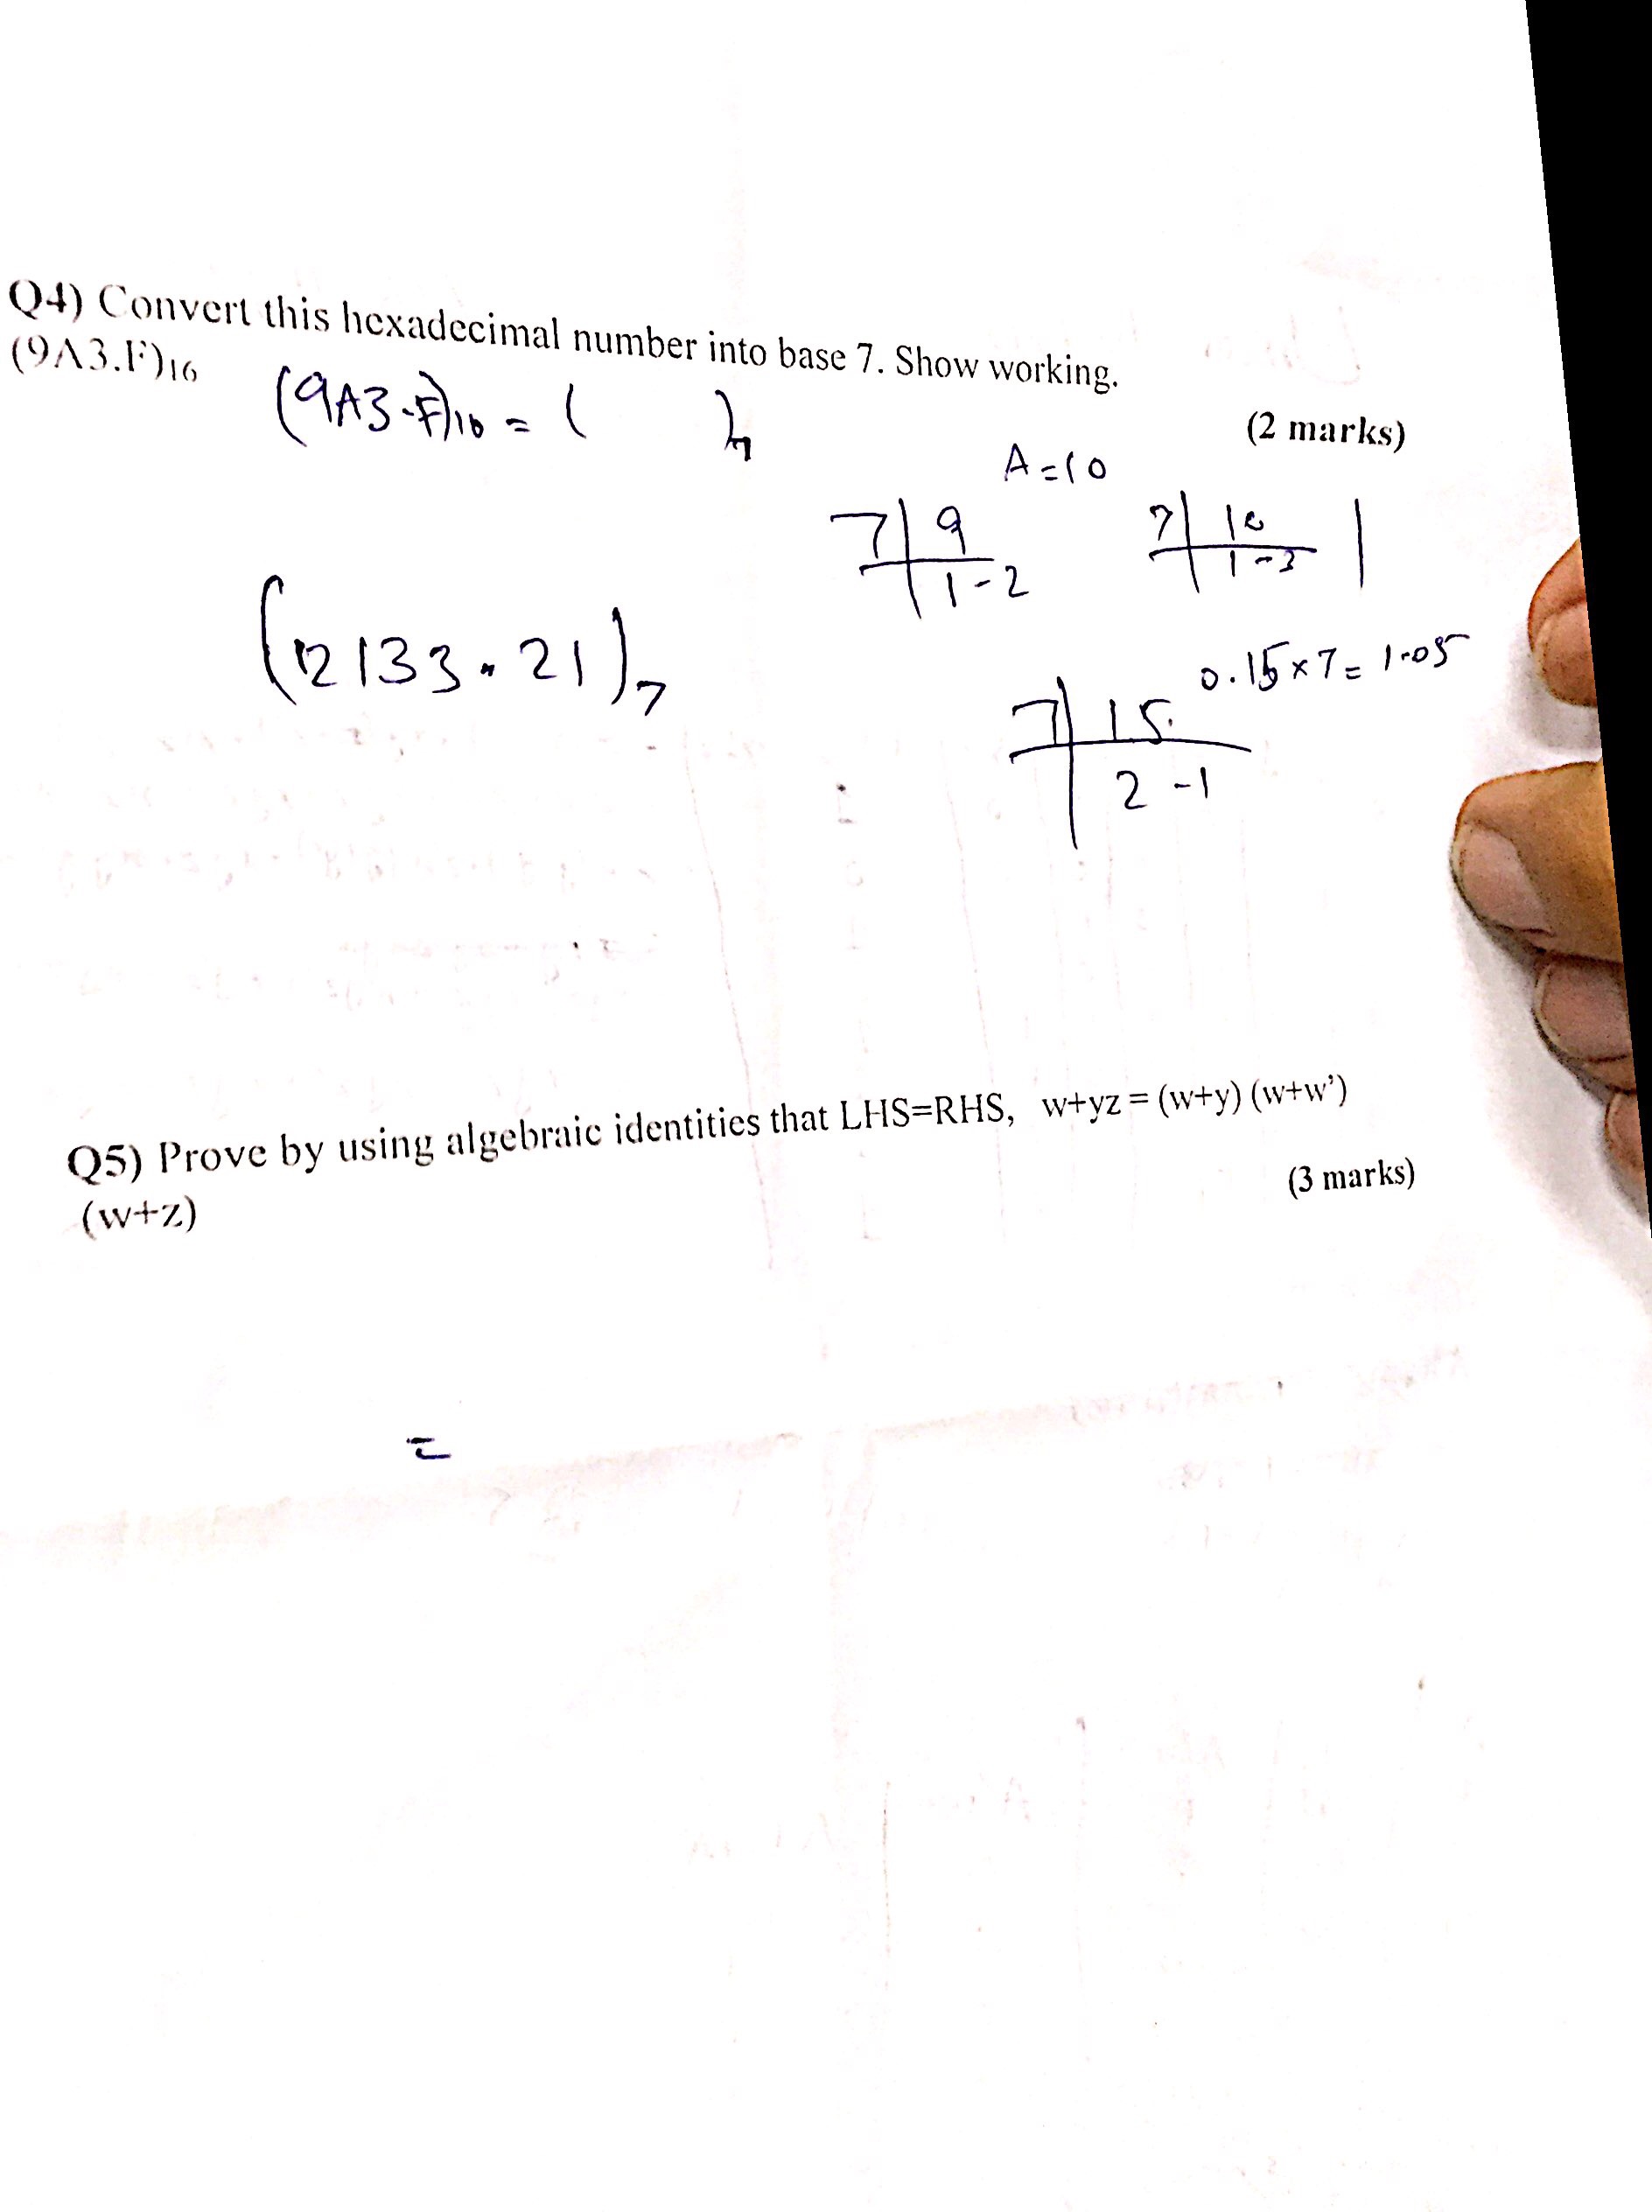 Q4) Convert this hexadecimal number into base 7. Show working.
(9A3.F)16
(2 marks)
(9A3.F)16 = ( )7
A=10
7 9
1-2
7 10
1-3
(12133.21)7
0.15x7= 1.05
7 15
2-1
Q5) Prove by using algebraic identities that LHS=RHS, w+yz = (w+y) (w+w')
(w+z)
(3 marks)
=